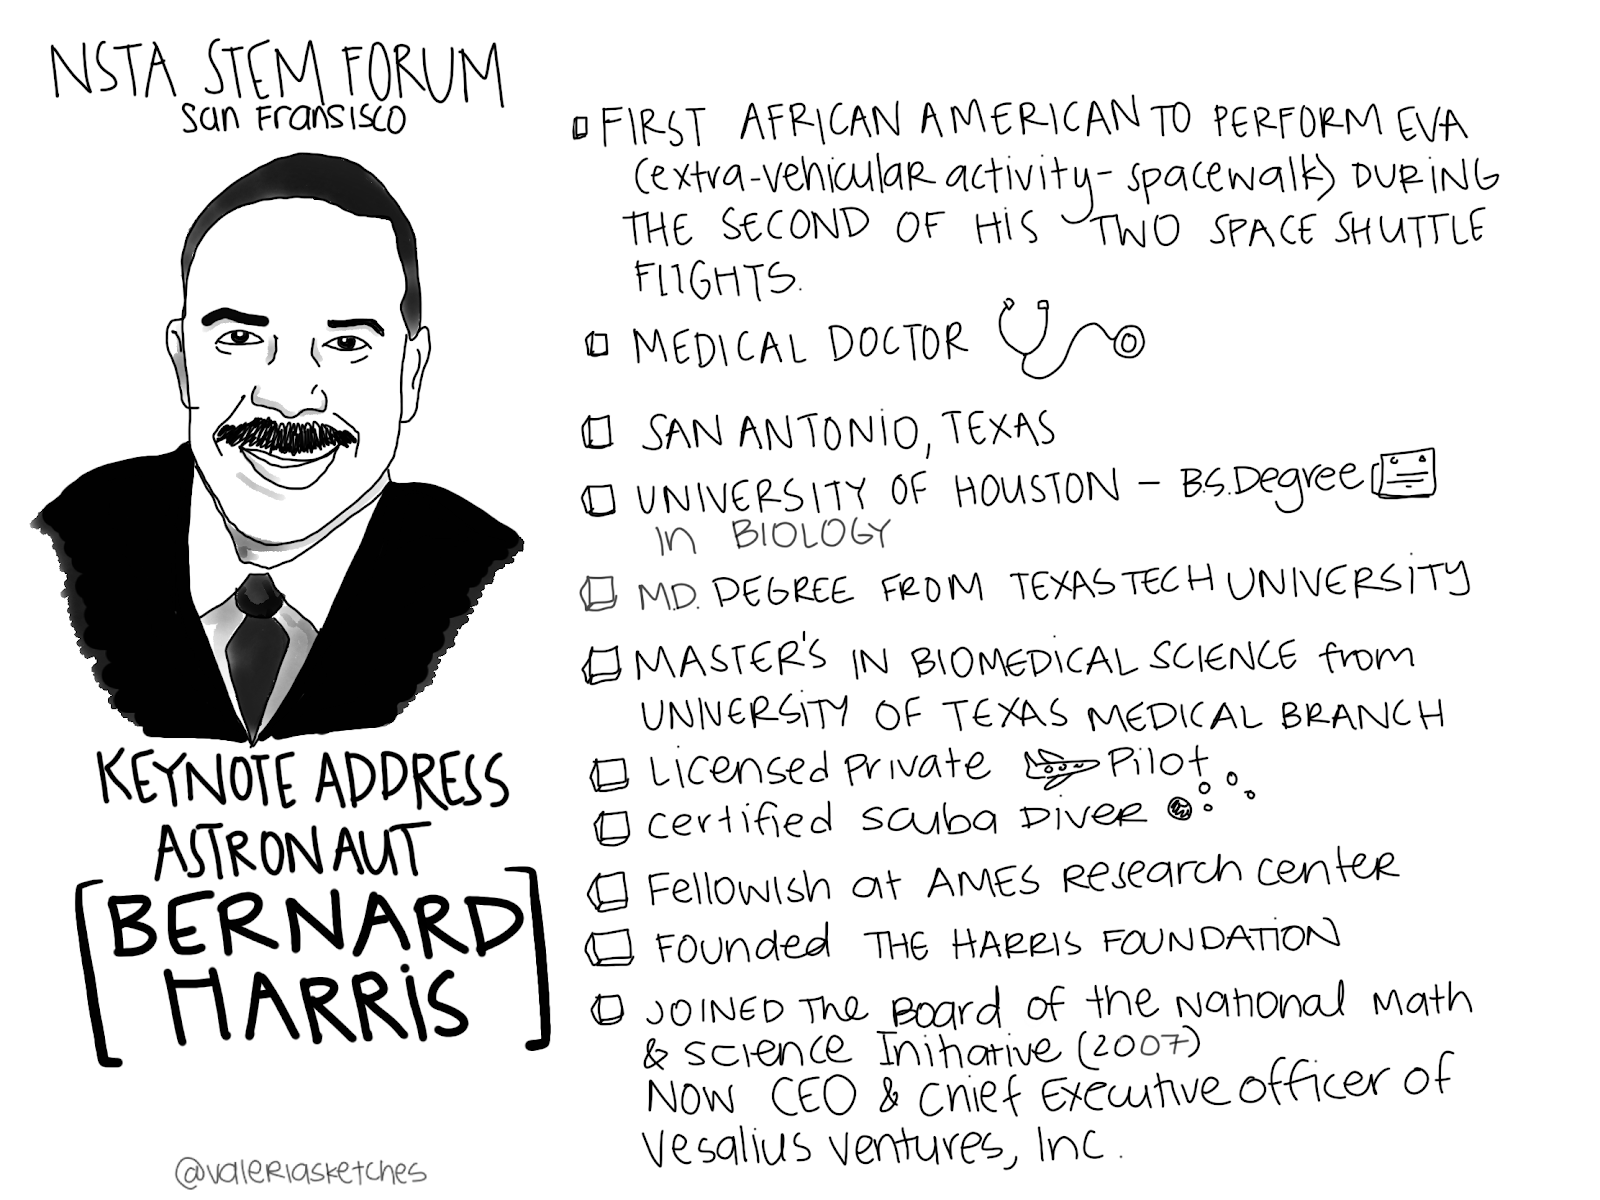 NSTA STEM FORUM
San Fransisco
KEYNOTE ADDRESS
ASTRONAUT
BERNARD
HARRIS
@valeriasketches
FIRST AFRICAN AMERICAN TO PERFORM EVA
(extra-vehicular activity- spacewalk) DURING
THE SECOND OF HIS TWO SPACE SHUTTLE
FLIGHTS.
MEDICAL DOCTOR
SAN ANTONIO, TEXAS
UNIVERSITY OF HOUSTON - B.S. Degree
in BIOLOGY
M.D. DEGREE FROM TEXAS TECH UNIVERSITY
MASTER'S IN BIOMEDICAL SCIENCE from
UNIVERSITY OF TEXAS MEDICAL BRANCH
Licensed Private Pilot
Certified Scuba Diver
Fellowish at AMES Research Center
Founded THE HARRIS FOUNDATION
JOINED The Board of the National Math
& Science Initiative (2007)
NOW CEO & Chief Executive Officer of
Vesalius Ventures, Inc.